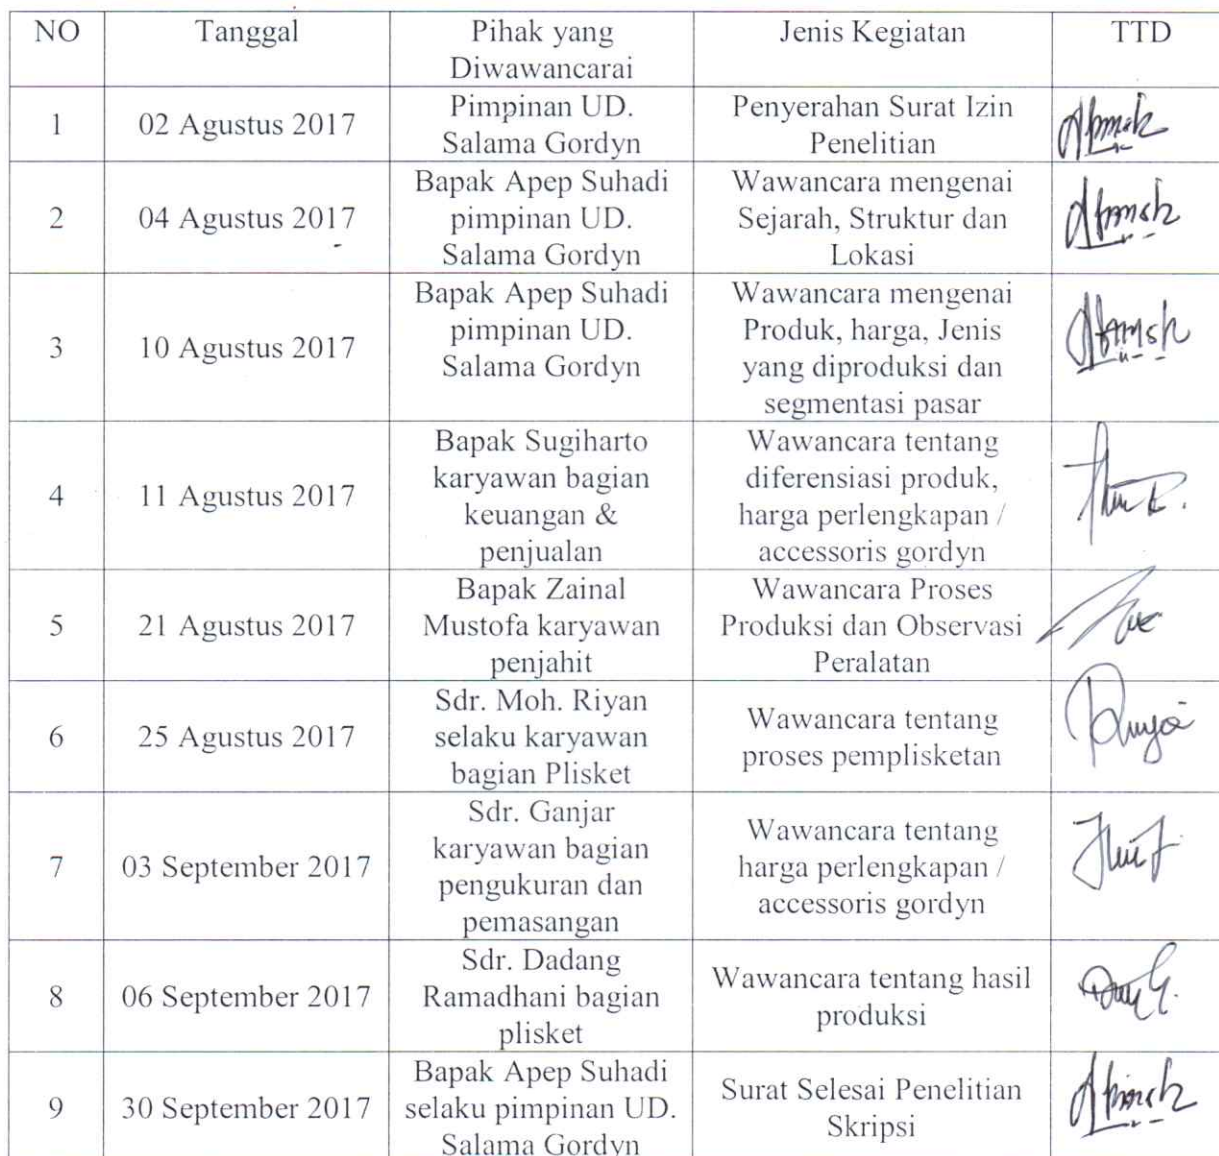 NO Tanggal Pihak yang Diwawancarai Jenis Kegiatan TTD
1 02 Agustus 2017
Pimpinan UD.
Salama Gordyn
Penyerahan Surat Izin
Penelitian
2 04 Agustus 2017
Bapak Apep Suhadi
pimpinan UD.
Salama Gordyn
Wawancara mengenai
Sejarah, Struktur dan
Lokasi
3 10 Agustus 2017
Bapak Apep Suhadi
pimpinan UD.
Salama Gordyn
Wawancara mengenai
Produk, harga, Jenis
yang diproduksi dan
segmentasi pasar
4 11 Agustus 2017
Bapak Sugiharto
karyawan bagian
keuangan &
penjualan
Wawancara tentang
diferensiasi produk,
harga perlengkapan /
accessoris gordyn
5 21 Agustus 2017
Bapak Zainal
Mustofa karyawan
penjahit
Wawancara Proses
Produksi dan Observasi
Peralatan
6 25 Agustus 2017
Sdr. Moh. Riyan
selaku karyawan
bagian Plisket
Wawancara tentang
proses pemplisketan
7 03 September 2017
Sdr. Ganjar
karyawan bagian
pengukuran dan
pemasangan
Wawancara tentang
harga perlengkapan /
accessoris gordyn
8 06 September 2017
Sdr. Dadang
Ramadhani bagian
plisket
Wawancara tentang hasil
produksi
9 30 September 2017
Bapak Apep Suhadi
selaku pimpinan UD.
Salama Gordyn
Surat Selesai Penelitian
Skripsi